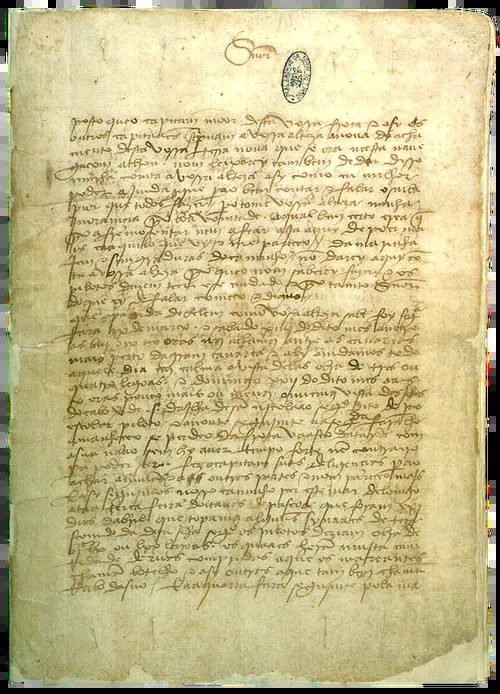 Snõr
posto queo capitam moor desta vossa frota e asy os
outros capitaães screpuam a vossa alteza anoua do acha
mento desta vossa terra noua que se ora neesta naue
gaçom achou. nom leixarey tambem de dar disso
minha comta a vossa alteza asy como eu milhor
poder ajmda que pera o bem contar e falar o saiba
pior que todos fazer. pero tome vossa alteza minha
jnoramçia por boa vomtade. aqual bem çerto crea q̃
por afremosentar nem afear aja aquy de poer ma
is ca aquilo que vy e me pareçeo. / da marinha
jem e simgraduras do caminho nõ darey aquy cõ
ta a vossa alteza por que o nom saberey fazer e os
pilotos deuem teer ese cuidado e por tanto Snõr
do que ey de falar começo e diguo. /
que a partida de belem como vossa alteza sabe foy segª
feira ix de março. e sabado xiiij do dito mes amtre
as biij e ix oras nos achamos amtre as canareas
mais perto da gram canarea e aly amdamos todo
aquele dia em calma a vista delas obra de tres ou
quatro legoas. e domingo xxij do dito mes aas
x oras pouco mais ou menos ouuemos vista das jlhas
do cabo verde .s. da jlha de sã njcolaao segº dito de pº
escolar piloto. e a noute segujmte aa segª feira lhe
amanheceo se perdeo da frota vaasco d atayde com
a sua naao sem hy auer tempo forte nem contrairo
pera poder seer. fez o capitam suas deligençias pera o
achar a huũas e a outras partes e nom pareceo majs
E asy segujmos nosso caminho per este mar de lomgo
ataa terça feira d oitauas de pascoa que foram xxj
dias d abril que topamos alguũs synaaes de tera
seemdo da dita jlha segº os pilotos deziam obra de
bjc lx ou lxx legoas. os quaaes herã mujta cam
tidade d eruas compridas aque os mareantes
chamã botelho e asy outras aque tambem chamã
rrabo d asno. / E aa quarta feira segujmte pola ma